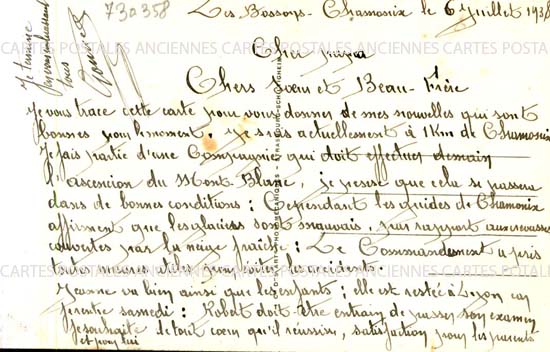 73a358
Les Bossons - Chamonix le 6 Juillet 193
Cher
Chers sœur et Beau-Frère
Je vous trace cette carte pour vous donner de mes nouvelles qui sont
bonnes pour le moment. Je suis actuellement à 1 Km de Chamonix
Je fais partie d'une Compagnie qui doit effectuer demain
l'ascension du Mont-Blanc, je pense que cela se passera
dans de bonnes conditions : Cependant les guides de Chamonix
affirment que les glaciers sont mauvais, par rapport aux crevasses
couvertes par la neige fraîche : Le Commandement a pris
toutes mesures utiles pour éviter les accidents.
Jeanne va bien ainsi que les enfants ; elle est restée à Lyon car
je rentre samedi : Robert doit être entrain de passer son examen
Je souhaite de tout cœur qu'il réussisse, satisfaction pour les parents
et pour lui
Je termine
en vous embrassant
tous
CARTES POSTALES ANCIENNES CARTES POSTALES ANCIENNES CARTES POSTALES
CARTES POSTALES ANCIENNES CARTES POSTALES ANCIENNES CARTES POSTALES